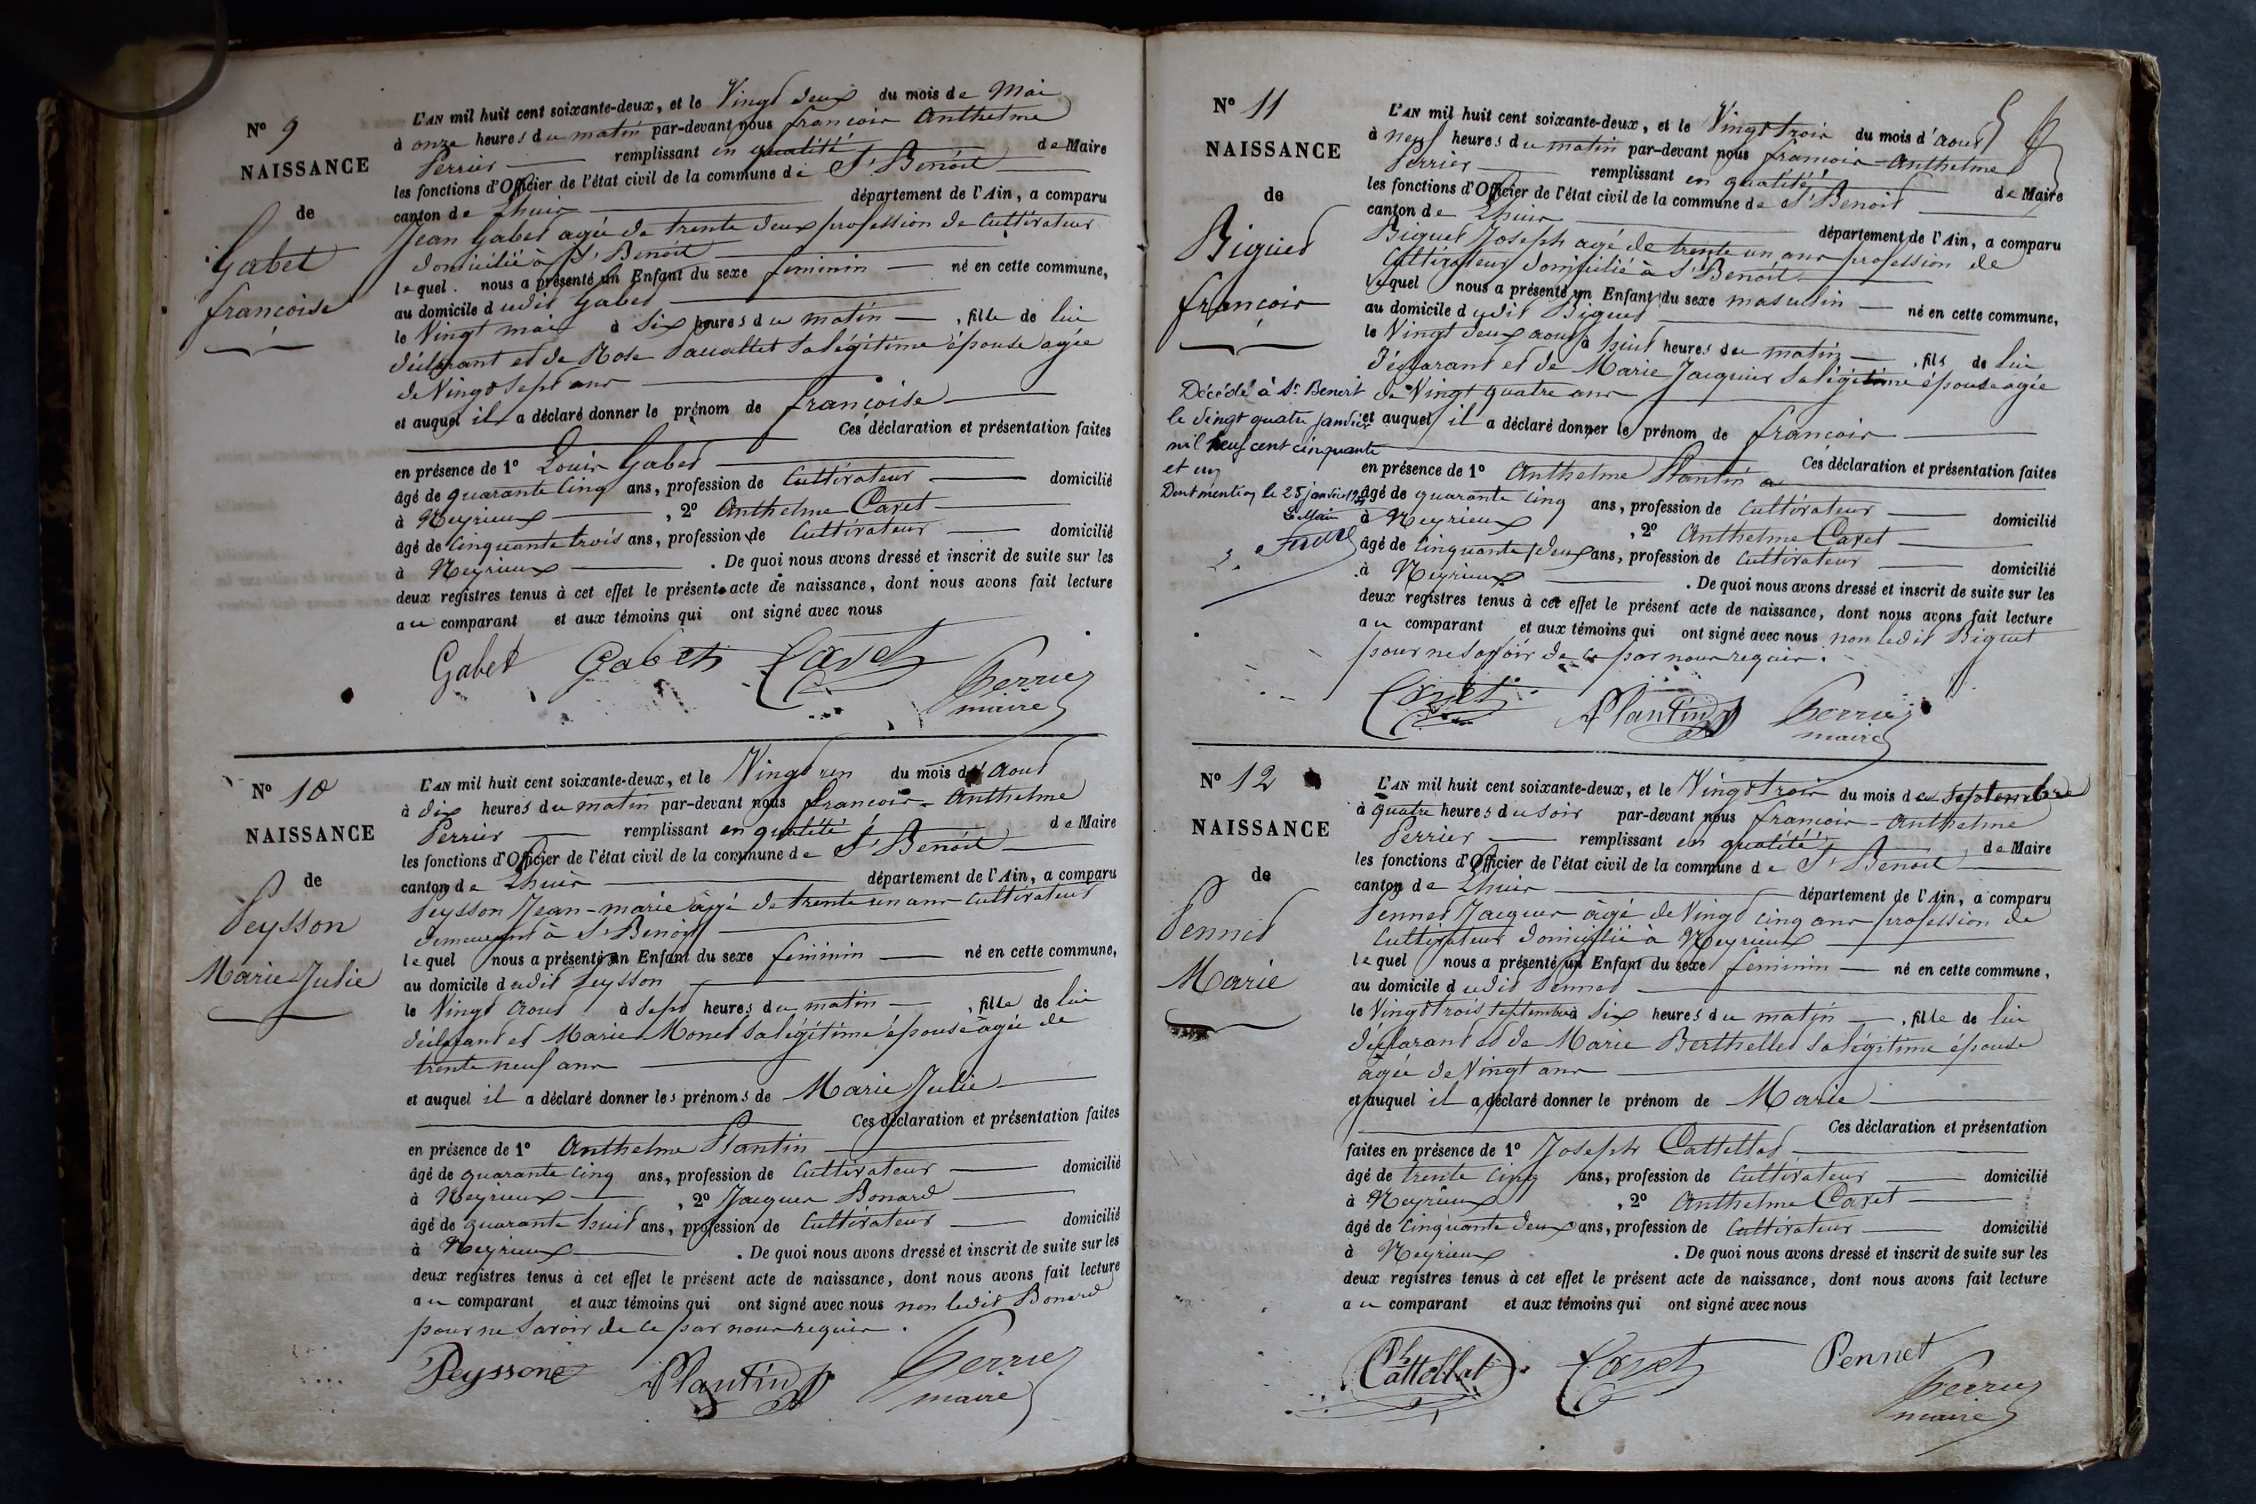 N° 9
NAISSANCE
de
Gabet
françoise
L'AN mil huit cent soixante-deux, et le Vingt deux du mois de Mai
à onze heures du matin par-devant nous françois Anthelme
Perrier remplissant en qualité de Maire
les fonctions d'Officier de l'état civil de la commune de St Benoit
canton de Lhuis département de l'Ain, a comparu
Jean Gabet agé de trente deux profession de Cultivateur
domicilié à St Benoit
lequel nous a présenté un Enfant du sexe feminin né en cette commune,
au domicile dudit Gabet
le Vingt mai à Six heures du matin , fille de lui
déclarant et de Rose sa légitime épouse agée
de Vingt Sept ans
et auquel il a déclaré donner le prénom de françoise
Ces déclaration et présentation faites
en présence de 1° Louis Gabet
âgé de quarante Cinq ans, profession de Cultivateur domicilié
à Neyrieux , 2° Anthelme Cavet
âgé de Cinquante trois ans, profession de Cultivateur domicilié
à Neyrieux . De quoi nous avons dressé et inscrit de suite sur les
deux registres tenus à cet effet le présent acte de naissance, dont nous avons fait lecture
au comparant et aux témoins qui ont signé avec nous
Gabet Gabet Cavet Perrier
maire
N° 10
NAISSANCE
de
Peysson
Marie Julie
L'AN mil huit cent soixante-deux, et le Vingt un du mois d'Aout
à dix heures du matin par-devant nous francois-Anthelme
Perrier remplissant en qualité de Maire
les fonctions d'Officier de l'état civil de la commune de St Benoit
canton de Lhuis département de l'Ain, a comparu
Peysson Jean-marie agé de trente un ans Cultivateur
demeurant à St Benoit
lequel nous a présenté un Enfant du sexe féminin né en cette commune,
au domicile dudit Peysson
le Vingt Aout à Sept heures du matin , fille de lui
déclarant et Marie Monet sa légitime épouse agée de
trente neuf ans
et auquel il a déclaré donner les prénoms de Marie Julie
Ces déclaration et présentation faites
en présence de 1° Anthelme Plantin
âgé de quarante Cinq ans, profession de Cultivateur domicilié
à Neyrieux , 2° Jacques Bonard
âgé de quarante huit ans, profession de Cultivateur domicilié
à Neyrieux . De quoi nous avons dressé et inscrit de suite sur les
deux registres tenus à cet effet le présent acte de naissance, dont nous avons fait lecture
au comparant et aux témoins qui ont signé avec nous non ledit Bonard
pour ne Savoir de ce par nous requis.
Peysson Plantin Perrier
maire
N° 11
NAISSANCE
de
Biguet
françois
Décédé à St Benoit
le vingt quatre janvier
mil neuf cent cinquante
et un
Dont mention le 25 janvier 1951
Le Maire
L'AN mil huit cent soixante-deux, et le Vingt trois du mois d'aout
à neuf heures du matin par-devant nous francois-Anthelme
Perrier remplissant en qualité de Maire
les fonctions d'Officier de l'état civil de la commune de St Benoit
canton de Lhuis département de l'Ain, a comparu
Biguet Joseph agé de trente un ans profession de
Cultivateur domicilié à St Benoit
lequel nous a présenté un Enfant du sexe masculin né en cette commune,
au domicile dudit Biguet
le Vingt deux aout à huit heures du matin , fils de lui
déclarant et de Marie Jacquier sa légitime épouse agée
de Vingt quatre ans
et auquel il a déclaré donner le prénom de francois
Ces déclaration et présentation faites
en présence de 1° Anthelme Plantin
âgé de quarante Cinq ans, profession de Cultivateur domicilié
à Neyrieux , 2° Anthelme Cavet
âgé de Cinquante deux ans, profession de Cultivateur domicilié
à Neyrieux . De quoi nous avons dressé et inscrit de suite sur les
deux registres tenus à cet effet le présent acte de naissance, dont nous avons fait lecture
au comparant et aux témoins qui ont signé avec nous non ledit Biguet
pour ne Savoir de ce par nous requis.
Cavet Plantin Perrier
maire
N° 12
NAISSANCE
de
Pennet
Marie
L'AN mil huit cent soixante-deux, et le Vingt trois du mois de Septembre
à quatre heures du soir par-devant nous francois-Anthelme
Perrier remplissant en qualité de Maire
les fonctions d'Officier de l'état civil de la commune de St Benoit
canton de Lhuis département de l'Ain, a comparu
Pennet Jacques agé de Vingt Cinq ans profession de
Cultivateur domicilié à Neyrieux
lequel nous a présenté un Enfant du sexe feminin né en cette commune,
au domicile dudit Pennet
le Vingt trois Septembre à Six heures du matin , fille de lui
déclarant et de Marie Berthellet sa légitime épouse
agée de Vingt ans
et auquel il a déclaré donner le prénom de Marie
Ces déclaration et présentation
faites en présence de 1° Joseph Cattellat
âgé de trente Cinq ans, profession de Cultivateur domicilié
à Neyrieux , 2° Anthelme Cavet
âgé de Cinquante deux ans, profession de Cultivateur domicilié
à Neyrieux . De quoi nous avons dressé et inscrit de suite sur les
deux registres tenus à cet effet le présent acte de naissance, dont nous avons fait lecture
au comparant et aux témoins qui ont signé avec nous
Cattellat Cavet Pennet
Perrier
maire